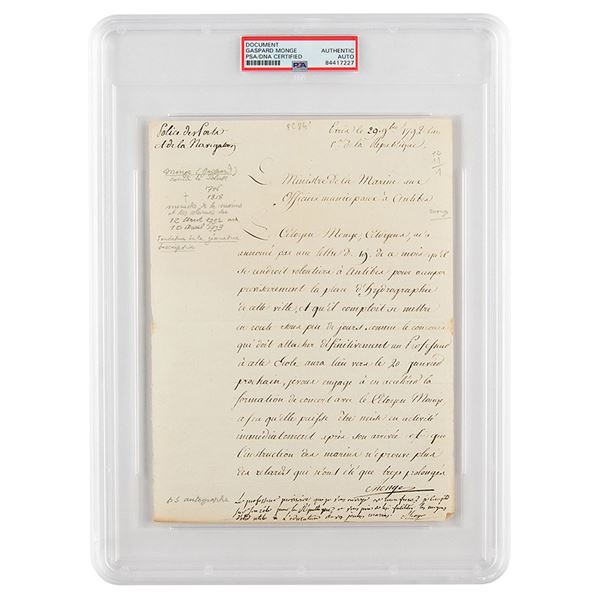 DOCUMENT
GASPARD MONGE
PSA/DNA CERTIFIED
AUTHENTIC
AUTO
84417227
PSA
Police des Ports
et de la Navigation
Paris le 29. 9bre 1792 L'an
1er de la République.
Monge (Gaspard)
1746
† 1818
ministre de la marine
et des colonies du
12 Août 1792 au
10 Avril 1793
fondateur de la géométrie
descriptive
Monge
Le Ministre de la Marine aux
Officiers municipaux d'Antibes
Le Citoyen Monge, Citoyens, m'a
annoncé par une lettre du 19. de ce mois qu'il
se rendroit volontiers à Antibes pour occuper
provisoirement la place d'Hydrographie
de cette ville, et qu'il comptoit se mettre
en route sous peu de jours. comme le concours
qui doit attacher définitivement un Professeur
à cette École aura lieu vers le 20 janvier
prochain, je vous engage à en accélérer la
formation de concert avec le Citoyen Monge
afin qu'elle puisse être mise en activité
immédiatement après son arrivée et que
l'instruction des marins n'éprouve plus
des retards qui n'ont été que trop prolongés
Monge
LS autographe
Le professeur provisoire que je vous envoye est mon frere,
Monge